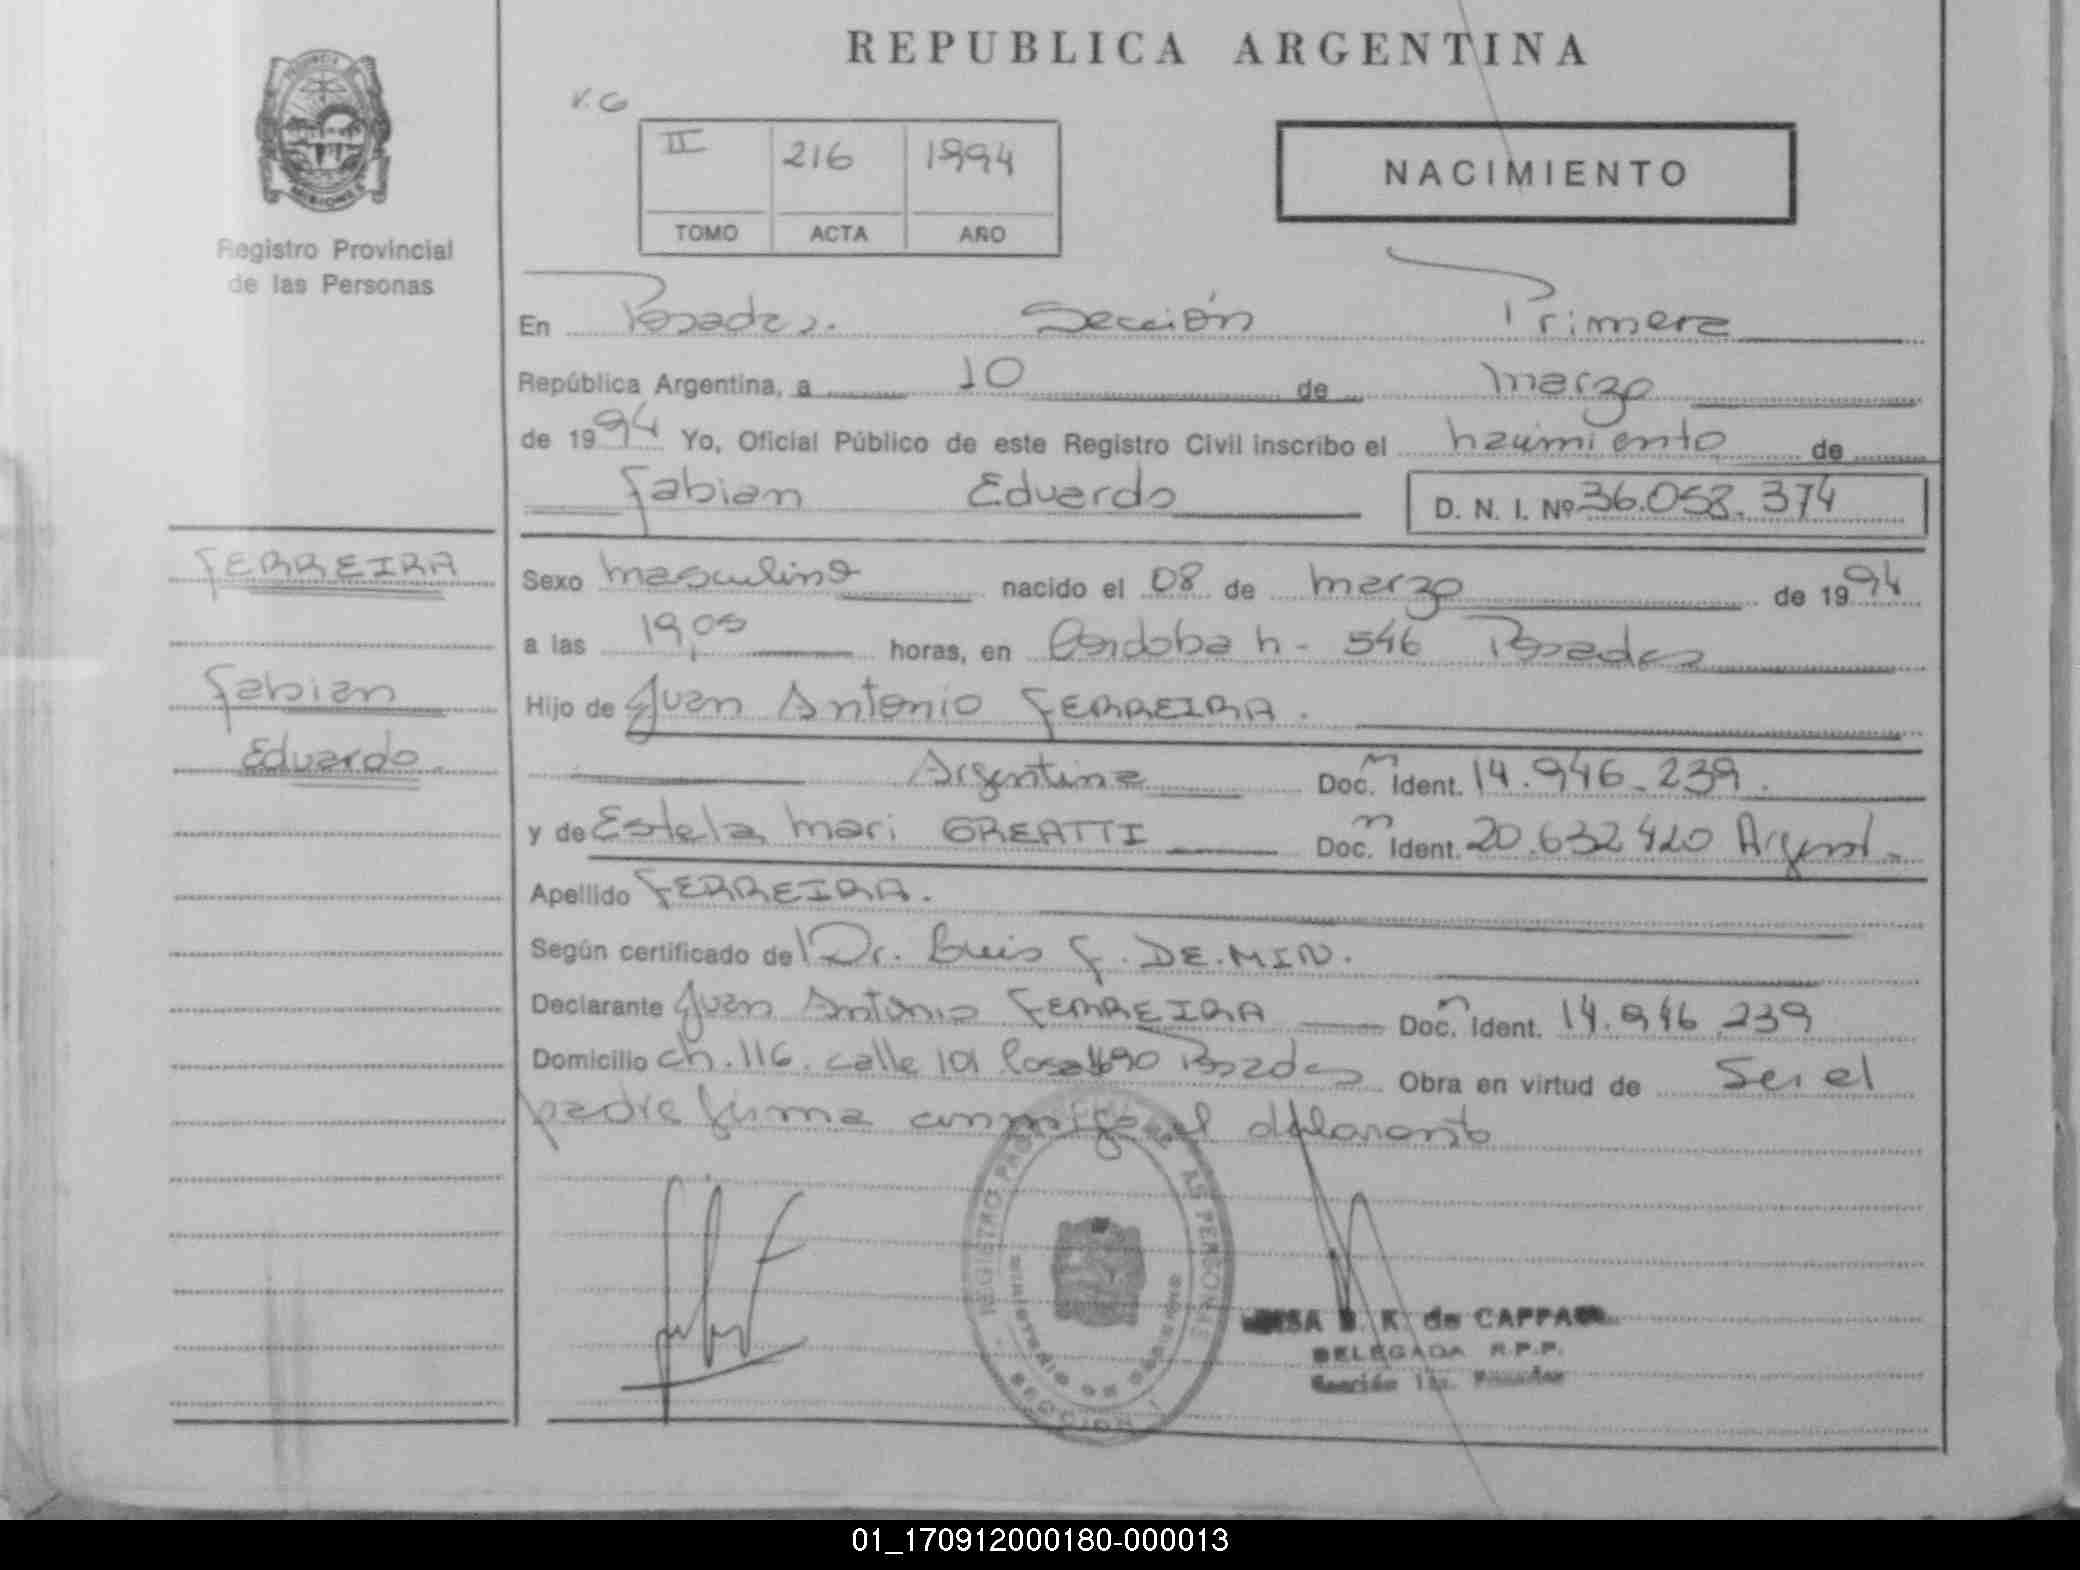 REPUBLICA ARGENTINA
V.G
II 216 1994
TOMO ACTA AÑO
NACIMIENTO
PROVINCIA DE MISIONES
Registro Provincial
de las Personas
En Posadas. Sección Primera
República Argentina, a 10 de marzo
de 1994 Yo, Oficial Público de este Registro Civil inscribo el nacimiento de
Fabian Eduardo D. N. I. Nº 36.058.374
FERREIRA
Fabian
Eduardo.
Sexo masculino nacido el 08 de marzo de 1994
a las 19,05 horas, en Cordoba n- 546 Posadas
Hijo de Juan Antonio FERREIRA.
Argentina Doc. Ident. 14.946.239.
y de Estela Mari GREATTI Doc. Ident. 20.632420 Argent.
Apellido FERREIRA.
Según certificado de Dr. Luis F. DE.MIN.
Declarante Juan Antonio FERREIRA Doc. Ident. 14.946.239
Domicilio ch.116. calle 101 Posadas Obra en virtud de Ser el
padre firma conmigo el declarante
REGISTRO PROVINCIAL DE LAS PERSONAS
MINISTERIO DE GOBIERNO
SECCION 1
K de CAPPA
DELEGADA R.P.P.
Sección 1ra. Posadas
01_170912000180-000013